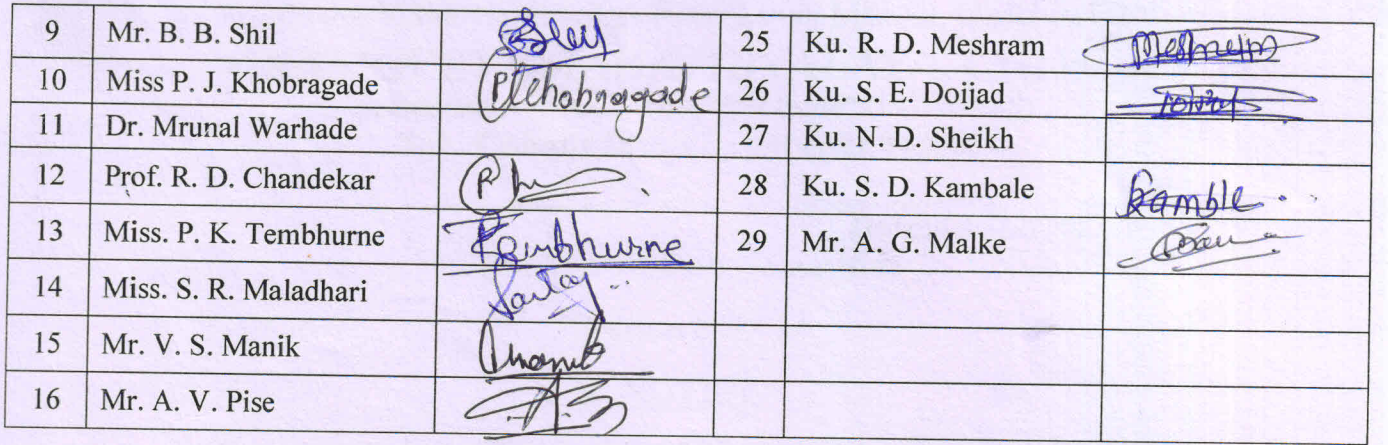 9 Mr. B. B. Shil 25 Ku. R. D. Meshram Meshram
10 Miss P. J. Khobragade PKhobragade 26 Ku. S. E. Doijad
11 Dr. Mrunal Warhade 27 Ku. N. D. Sheikh
12 Prof. R. D. Chandekar 28 Ku. S. D. Kambale Kamble
13 Miss. P. K. Tembhurne Tembhurne 29 Mr. A. G. Malke
14 Miss. S. R. Maladhari
15 Mr. V. S. Manik
16 Mr. A. V. Pise